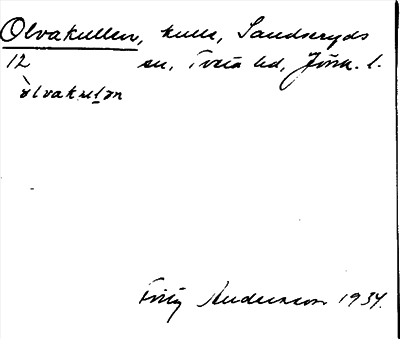 Olvakullen, kulle, Sandseryds
12 sn, Tveta hd, Jönk. l.
òlvakulən
Fritz Anderson 1934.